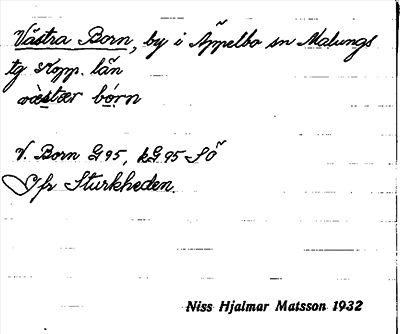 Västra Born, by i Äppelbo sn Malungs
tg Kopp. län
væstær bórn
V. Born G 95, kG 95 SÖ
Jfr Sturkheden.
Niss Hjalmar Matsson 1932